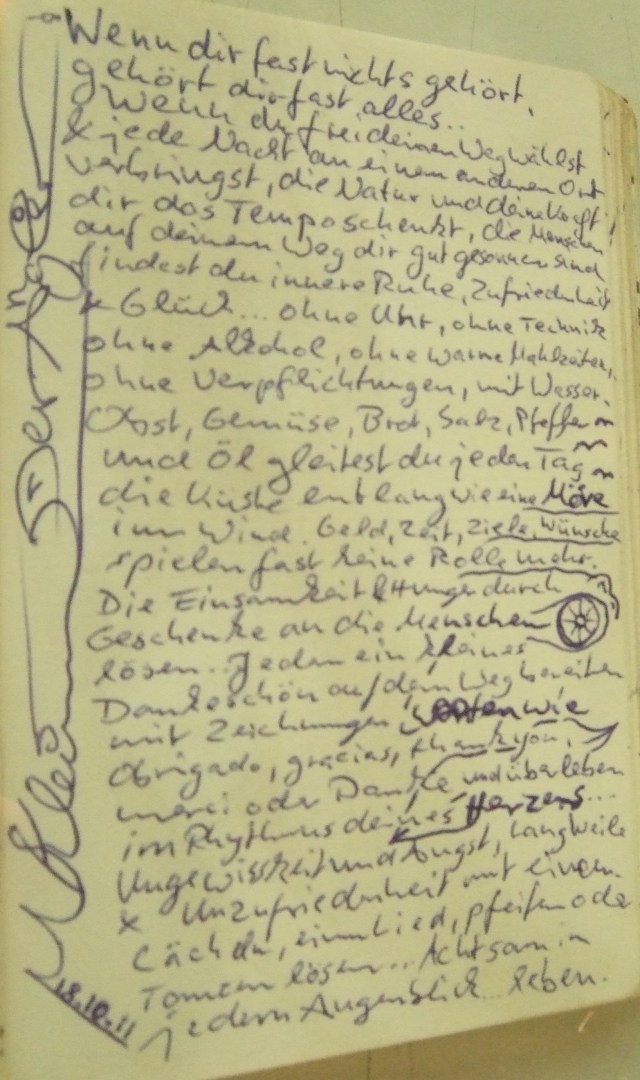 Wenn dir fast nichts gehört,
gehört dir fast alles..
Wenn du frei deinen Weg wählst
& jede Nacht an einem anderen Ort
verbringst, die Natur und deine Kraft
dir das Tempo schenkt, die Menschen
auf deinem Weg dir gut gesonnen sind
findest du innere Ruhe, Zufriedenheit
& Glück... ohne Uhr, ohne Technik
ohne Alkohol, ohne warme Mahlzeiten,
ohne Verpflichtungen, mit Wasser,
Obst, Gemüse, Brot, Salz, Pfeffer
und Öl gleitest du jeden Tag
die Küste entlang wie eine Möve
im Wind. Geld, Zeit, Ziele, Wünsche
spielen fast keine Rolle mehr.
Die Einsamkeit & Hunger durch
Geschenke an die Menschen
lösen. Jedem ein kleines
Dankeschön auf dem Weg bereiten
mit Zeichnungen, Worten wie
Obrigado, gracias, thank you,
merci oder Danke und überleben
im Rhythmus deines Herzens...
Ungewissheit und Angst, Langweile
& Unzufriedenheit mit einem
Lächeln, einem Lied, pfeifen oder
lösen... Achtsam in
jedem Augenblick... leben.
Der
Klein
18.10.11